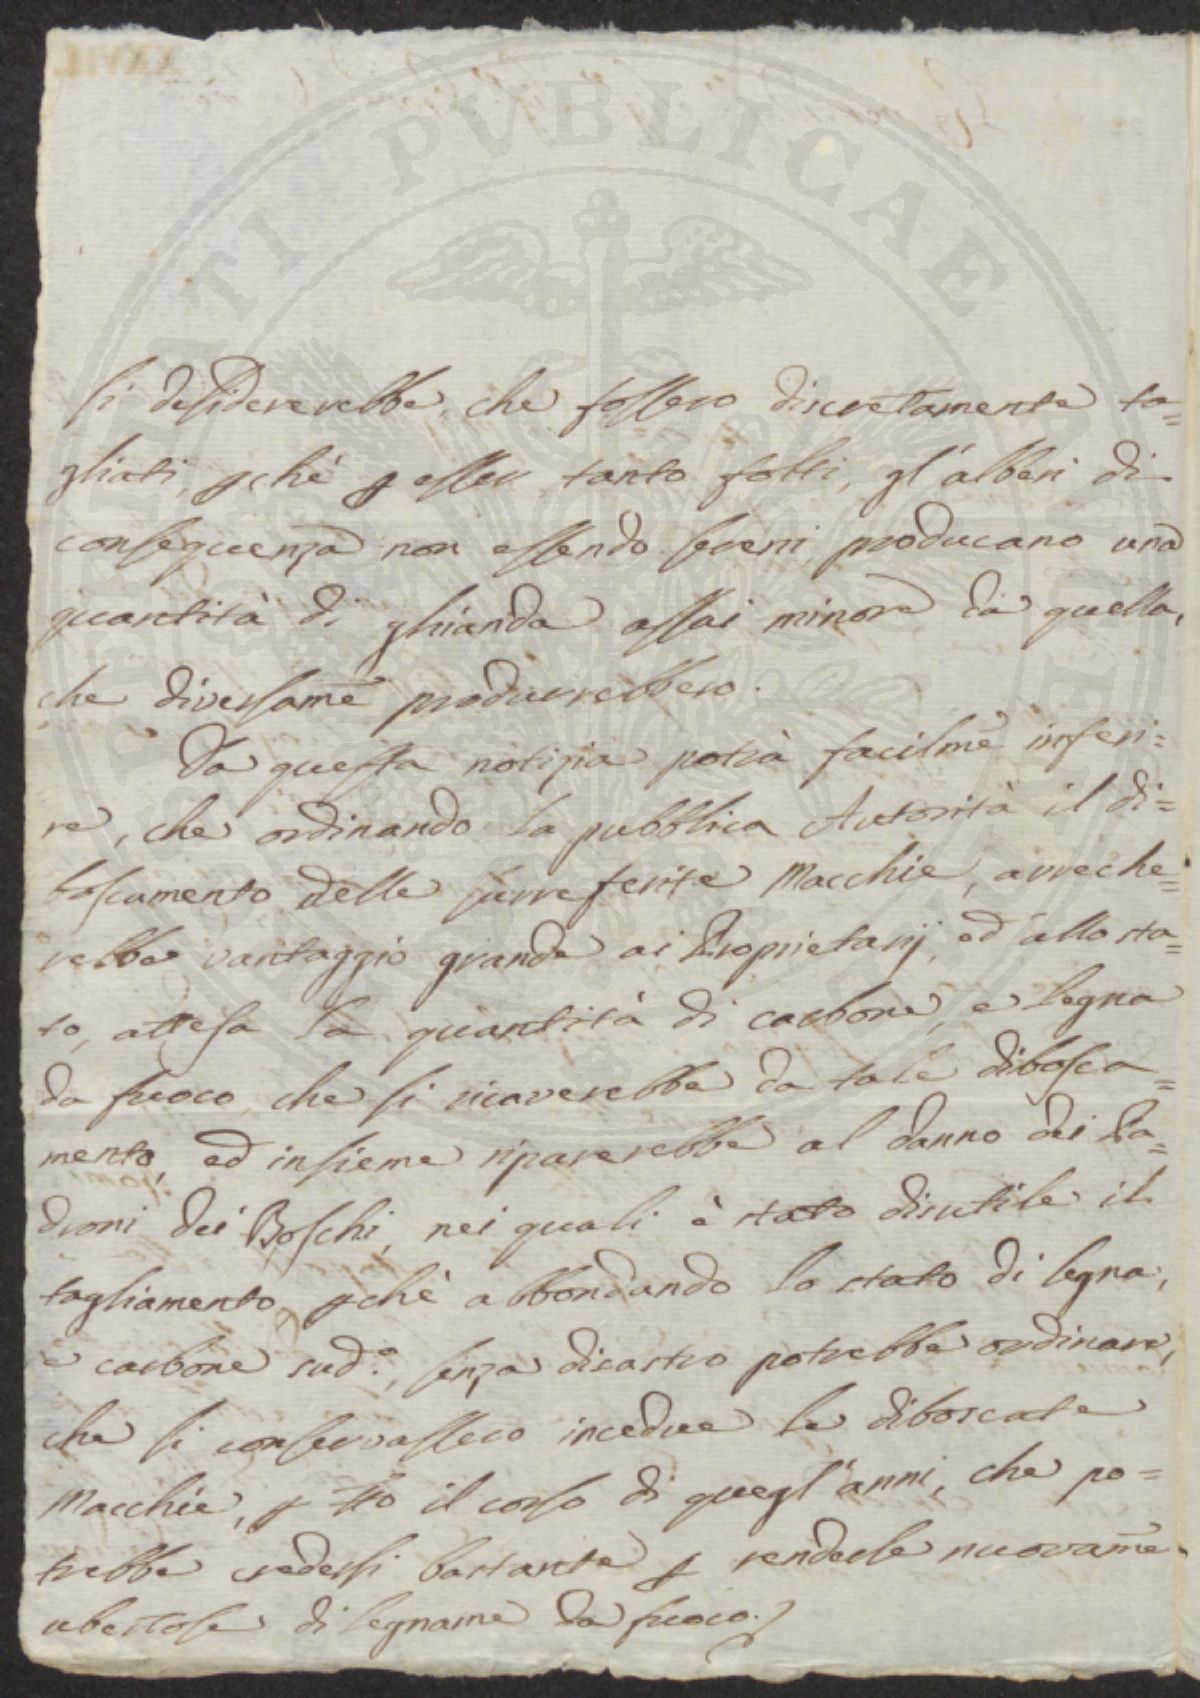 PVBLICAE
Si desidererebbe, che fossero discretamente ta=
gliati, pchè p esser tanto folti, gl'alberi di
conseguenza non essendo sereni, producano una
quantità di ghianda assai minore da quella,
che diversame produrrebbero.
Da questa notizia potrà facilme inferi=
re, che ordinando la pubblica Autorità il di=
boscamento delle surreferite Macchie, arreche=
rebbe vantaggio grande ai Proprietarij, ed allo sta=
to, attesa la quantità di carbone, e legna
da fuoco, che si ricaverebbe da tale disbosca=
mento, ed insieme riparerebbe al danno dei Pa=
droni dei Boschi, nei quali è stato disutile il
tagliamento, pchè abbondando lo stato di legna,
e carbone sudo, senza disastro potrebbe ordinare,
che si conservassero incedue le diboscate
Macchie, p tto il corso di quegl'anni, che po=
trebbe credersi bastante p renderle nuovame
ubertose di legname da fuoco.